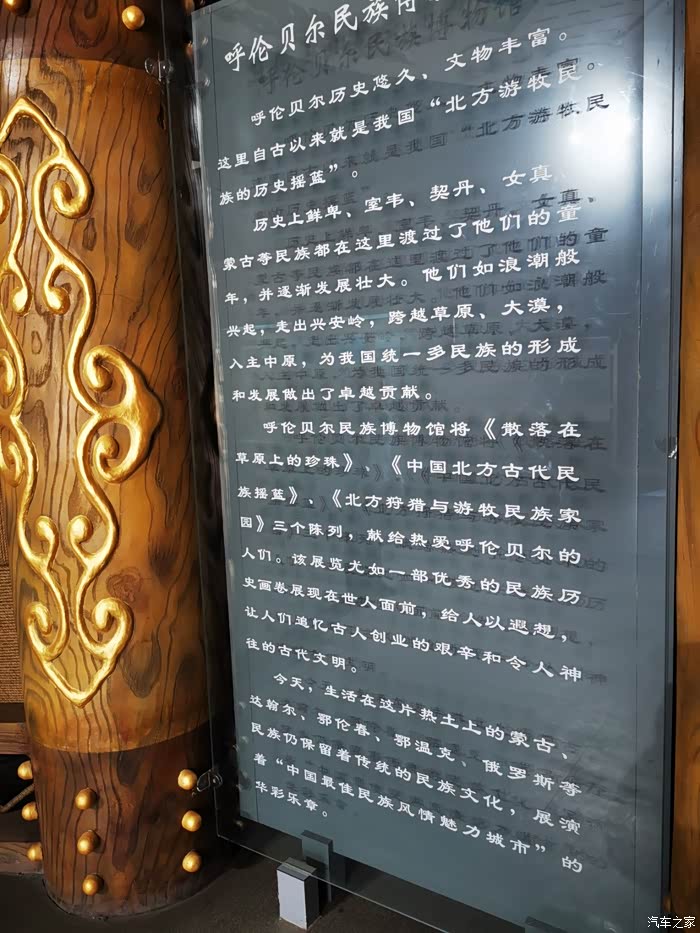 呼伦贝尔民族博
呼伦贝尔历史悠久、文物丰富。
这里自古以来就是我国“北方游牧民
族的历史摇蓝”。
历史上鲜卑、室韦、契丹、女真、
蒙古等民族都在这里渡过了他们的童
年，并逐渐发展壮大。他们如浪潮般
兴起，走出兴安岭，跨越草原、大漠，
入主中原，为我国统一多民族的形成
和发展做出了卓越贡献。
呼伦贝尔民族博物馆将《散落在
草原上的珍珠》、《中国北方古代民
族摇蓝》、《北方狩猎与游牧民族家
园》三个陈列，献给热爱呼伦贝尔的
人们。该展览尤如一部优秀的民族历
史画卷展现在世人面前，给人以遐想，
让人们追忆古人创业的艰辛和令人神
往的古代文明。
今天，生活在这片热土上的蒙古、
达斡尔、鄂伦春、鄂温克、俄罗斯等
民族仍保留着传统的民族文化，展演
着“中国最佳民族风情魅力城市”的
华彩乐章。
汽车之家